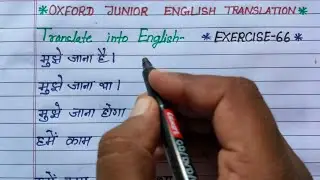 *OXFORD JUNIOR ENGLISH TRANSLATION*
Translate into English- *EXERCISE-66*
मुझे जाना है।
मुझे जाना था।
मुझे जाना होगा
हमें काम